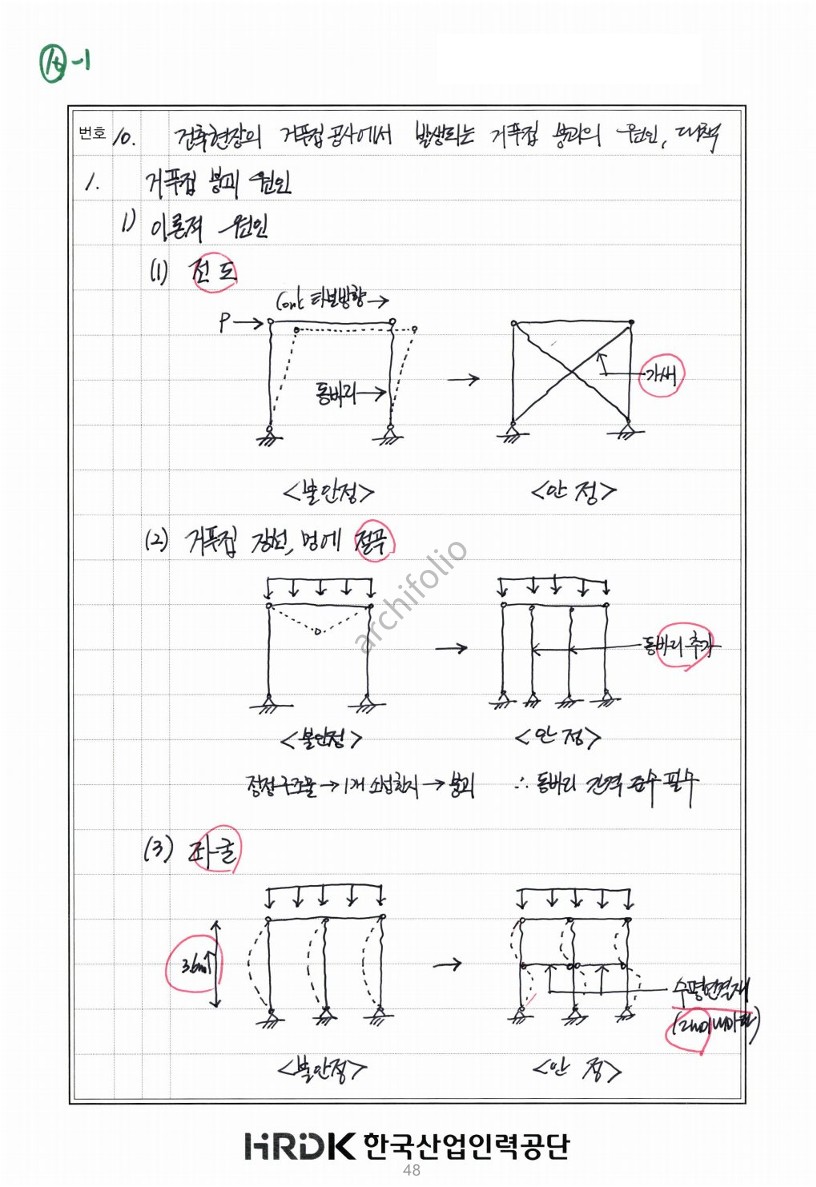 10-1
번호 10. 건축현장의 거푸집공사에서 발생되는 거푸집 붕괴의 원인, 대책
1. 거푸집 붕괴 원인
1) 이론적 원인
(1) 전도
Conc 타설방향→
P→
동바리→
→
가새
<불안정>
<안정>
(2) 거푸집 장선, 멍에 절곡
→
동바리 추가
<불안정>
<안정>
정정구조물→1개 소성힌지→붕괴 ∴ 동바리 간격 준수 필수
(3) 좌굴
3.6m↑
→
수평연결재
(2m이내마다)
<불안정>
<안정>
archifolio
HRDK 한국산업인력공단
48